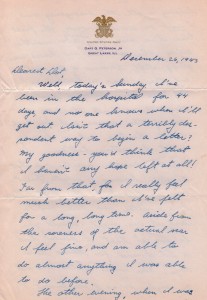 Great Lakes, Ill.
December 26, 1943
Well, today's Sunday I've
been in the hospital for 44
days and no one knows when I'll
get out. Isn't that a terribly des-
pondent way to begin a letter?
My goodness you'd think that
I haven't any hope left at all!
Far from that, for I really feel
much better than I've felt
for a long, long time. Aside from
the soreness of the actual scar
I feel fine, and am able to
do almost anything I was able
to do before.
The other evening, when I was